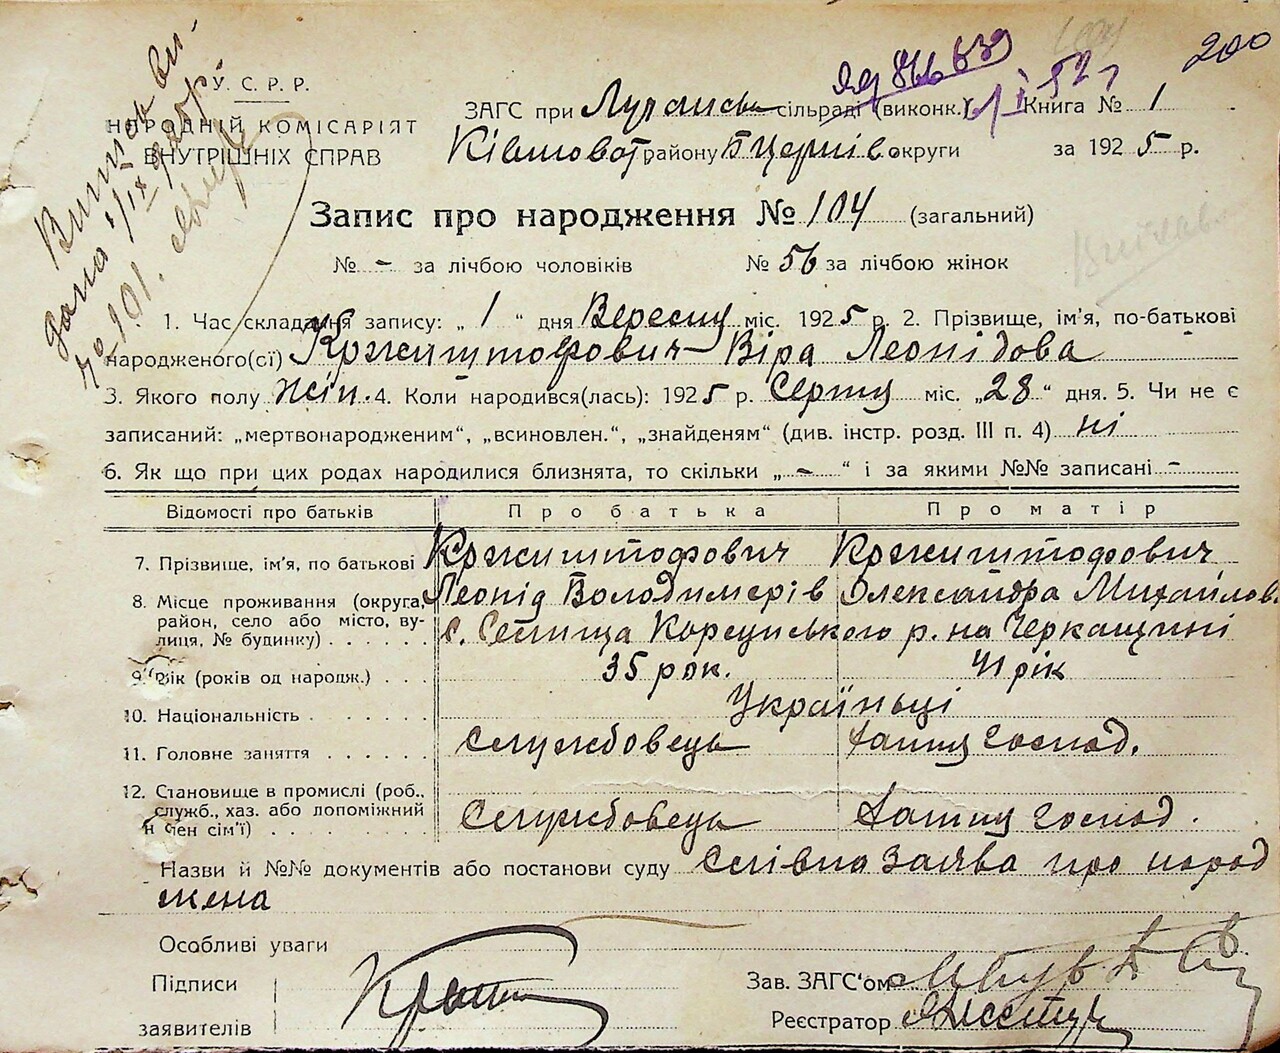 200
У. С. Р. Р.
НАРОДНІЙ КОМІСАРІЯТ
ВНУТРІШНІХ СПРАВ
ЗАГС при сільраді (виконк.) Книга № 1
району Б Церків округи за 1925 р.
Запис про народження № 104 (загальний)
№ - за лічбою чоловіків № 56 за лічбою жінок
1. Час складання запису: „ 1 “ дня Вересня міс. 1925 р. 2. Прізвище, ім'я, по-батькові
народженого(сї) Кржиштофович Віра Леонідова
3. Якого полу жін. 4. Коли народився(лась): 1925 р. Серпня міс. „28“ дня. 5. Чи не є
записаний: „мертвонародженим“, „всиновлен.“, „знайденям“ (див. інстр. розд. III п. 4) ні
6. Як що при цих родах народилися близнята, то скільки „ - “ і за якими №№ записані -
Відомості про батьків Про батька Про матір
7. Прізвище, ім'я, по батькові Кржиштофович Кржиштофович
Леонід Володимерів Олександра Михайлов.
8. Місце проживання (округа, район, село або місто, вулиця, № будинку) с. Селища Корсунського р. на Черкащині
9. Вік (років од народж.) 35 рок. 41 рік
10. Національність Українці
11. Головне заняття службовець господ.
12. Становище в промислі (роб., служб., хаз. або допоміжний член сім'ї) Службовець господ.
Назви й №№ документів або постанови суду Слівна заява про народ
жена
Особливі уваги
Підписи
заявителів
Зав. ЗАГС'ом
Реєстратор